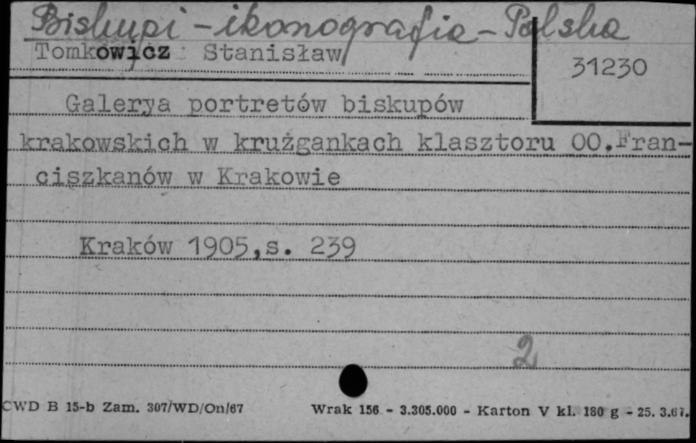 Biskupi - ikonografia - Polska
Tomkowicz Stanisław
31230
Galerya portretów biskupów
krakowskich w krużgankach klasztoru OO.Fran-
ciszkanów w Krakowie
Kraków 1905,s. 239
2
CWD B 15-b Zam. 307/WD/On/67
Wrak 156 - 3.305.000 - Karton V kl. 180 g - 25. 3.67.